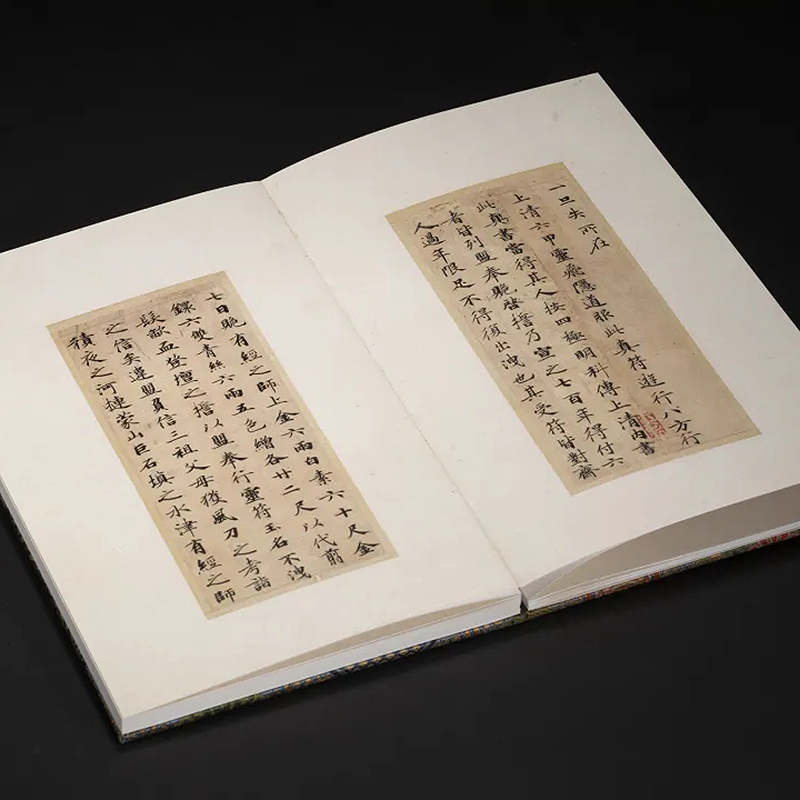 一旦失所在
上清六甲靈飛隱道服此真符遊行八方行
此真書當得其人按四極明科傳上清內書
者皆列盟奉跪啓擔乃宣之七百年得付六
人過年限足不得復出洩也其受符皆對齋
七日跪有經之師上金六兩白素六十尺金
鐶六雙青絲六兩五色繒各廿二尺以代翦
髮歃血登壇之擔以盟奉行靈符玉名不洩
之信矣違盟負信三祖父母獲風刀之考詣
積夜之河摙蒙山巨石填之水津有經之師